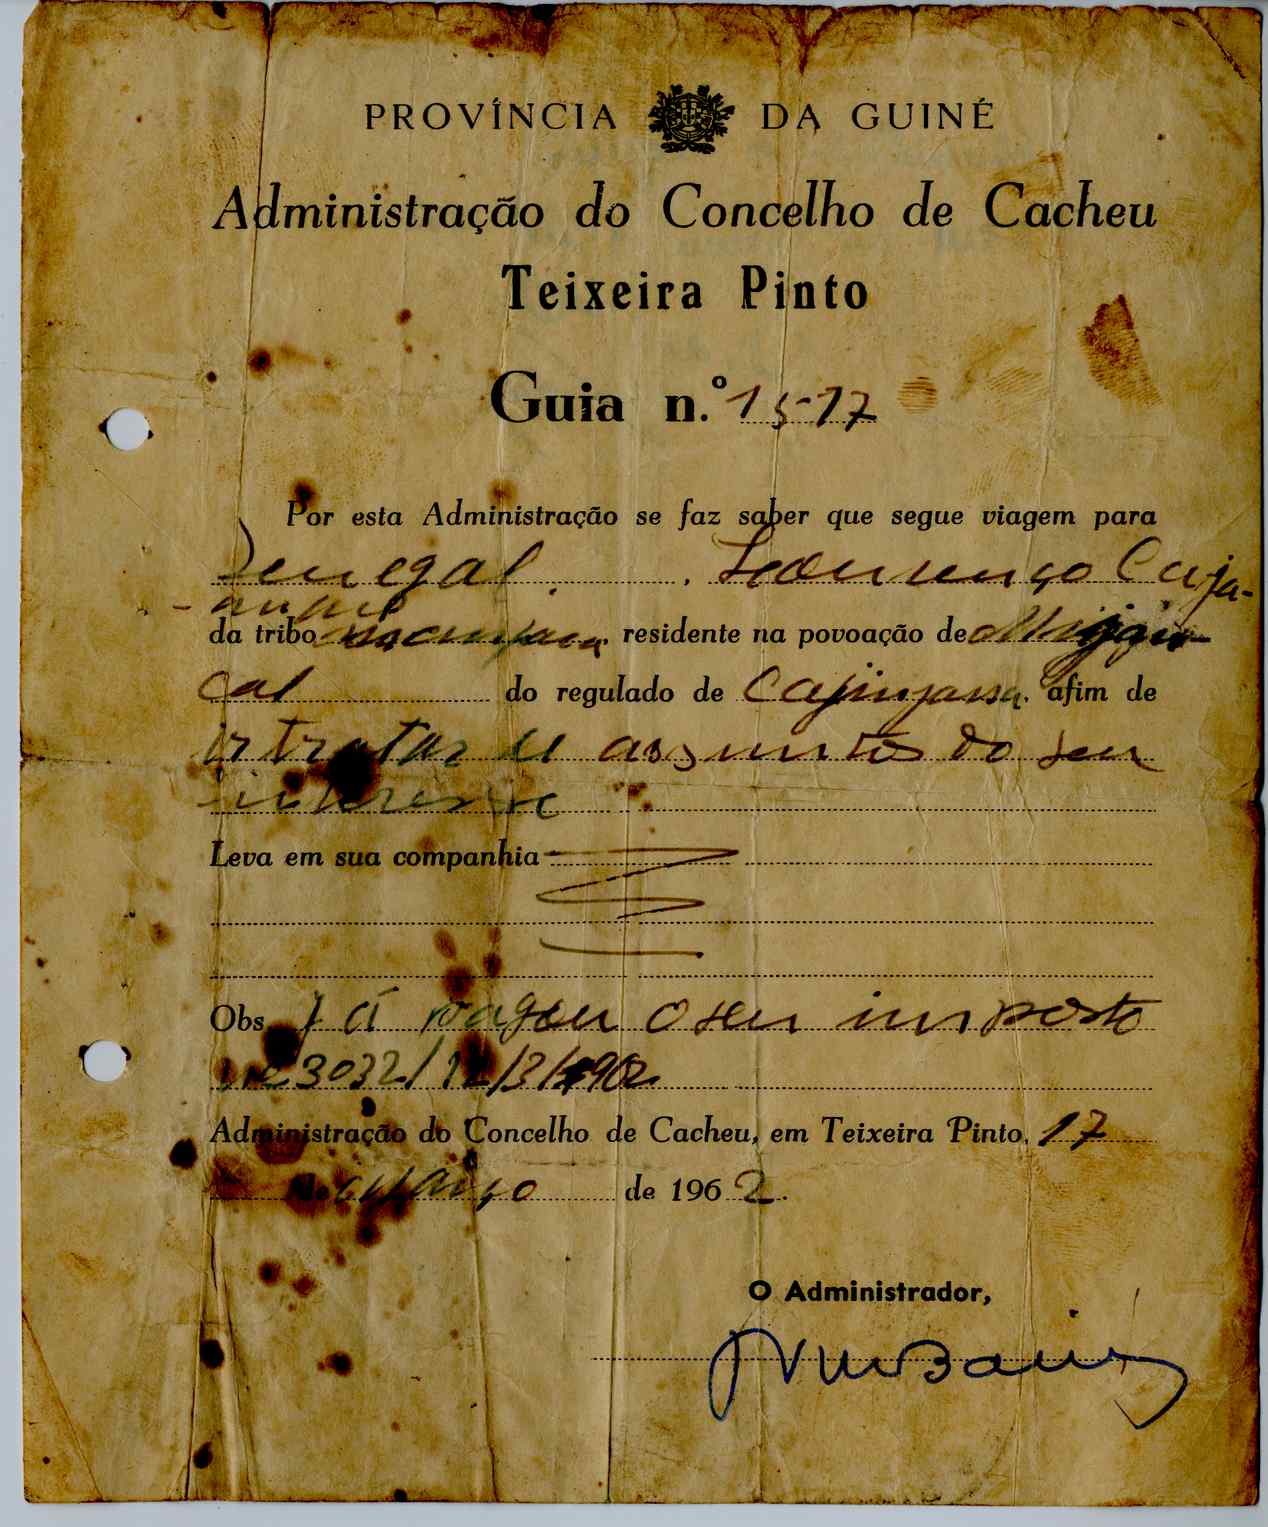 PROVÍNCIA DA GUINÉ
Administração do Concelho de Cacheu
Teixeira Pinto
Guia n.º 15-17
Por esta Administração se faz saber que segue viagem para
Senegal, Lourenço Caja-
da tribo residente na povoação de
cal do regulado de afim de
ir tratar de assuntos do seu
interesse
Leva em sua companhia
Obs. Já pagou o seu imposto
nº 3032/12/3/1962
Administração do Concelho de Cacheu, em Teixeira Pinto, 17
de Março de 1962.
O Administrador,